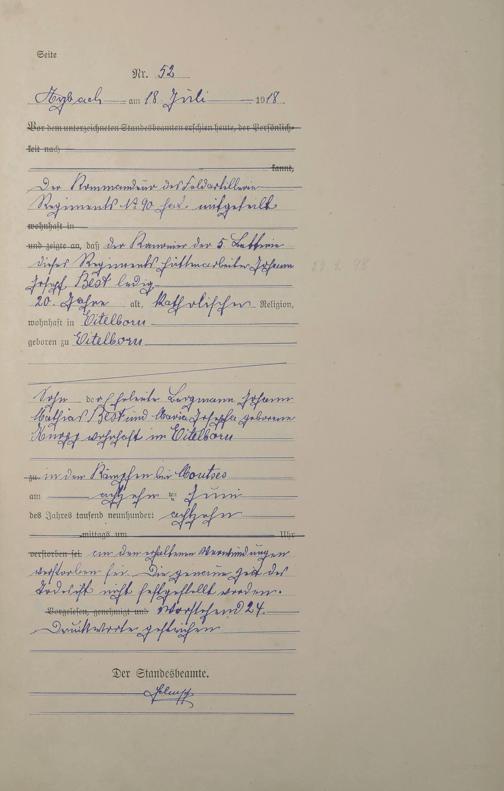 Seite
Nr. 52
Arzbach am 18 Juli 1918
Vor dem unterzeichneten Standesbeamten erschien heute, der Persönlich-
keit nach
kannt,
Der Kommandeur des Feldartillerie
Regiments No 90 hat mitgeteilt
wohnhaft in
und zeigte an, daß der Kanonier der 5. Batterie
dieses Regiments Hüttenarbeiter Johann
Josef Best ledig
20. Jahre alt, katholischer Religion,
wohnhaft in Eitelborn
geboren zu Eitelborn
Sohn der Eheleute Bergmann Johann
Mathias Best und Maria Josepha geborene
wohnhaft in Eitelborn
zu in den Kämpfen bei
am achtzehn ten Juni
des Jahres tausend neunhundert achtzehn
mittags um Uhr
verstorben sei. an den erhaltenen Verwundungen
verstorben sei. Die genaue Zeit des
Todes ist nicht festgestellt worden.
Vorgelesen, genehmigt und Vorstehend 24.
Druckworte gestrichen
Der Standesbeamte.